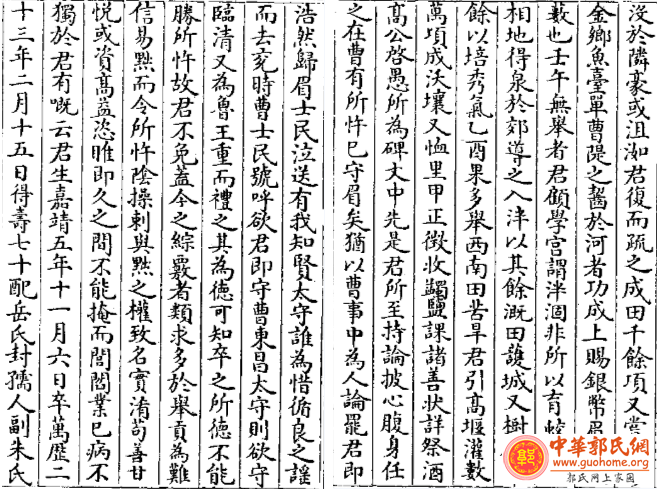 沒於隣豪或沮洳君復而疏之成田千餘項又嘗
金鄉魚臺單曹隄之齧於河者功成上賜銀幣
數也壬午無舉者君顧學宮謂泮涸非所以育
相地得泉於郊導之入泮以其餘溉田護城又樹
餘以培秀氣乙酉果多舉西南田苦旱君引高堰灌數
萬項成沃壤又恤里甲正徵收蠲鹽課諸善狀詳祭酒
髙公啓愚所為碑文中先是君所至持論披心腹身任
之在曹有所忤已守眉矣猶以曹事中為人論罷君即
浩然歸眉士民泣送有我知賢太守誰為惜循良之謡
而去兖時曹士民號呼欲君即守曹東昌太守則欲守
臨清又為魯王重而禮之其為德可知卒之所德不能
勝所忤故君不免蓋今之綜覈者類求多於舉貢為難
信易㸃而令所忤陰操刺與㸃之權致名實淆茍善甘
悦或資髙益恣睢即久之問不能掩而閭閻業已病不
獨於君有嘅云君生嘉靖五年十一月六日卒萬歴二
十三年二月十五日得壽七十配岳氏封孺人副朱氏
中華郭氏網
www.guohome.org
郭氏网上家园